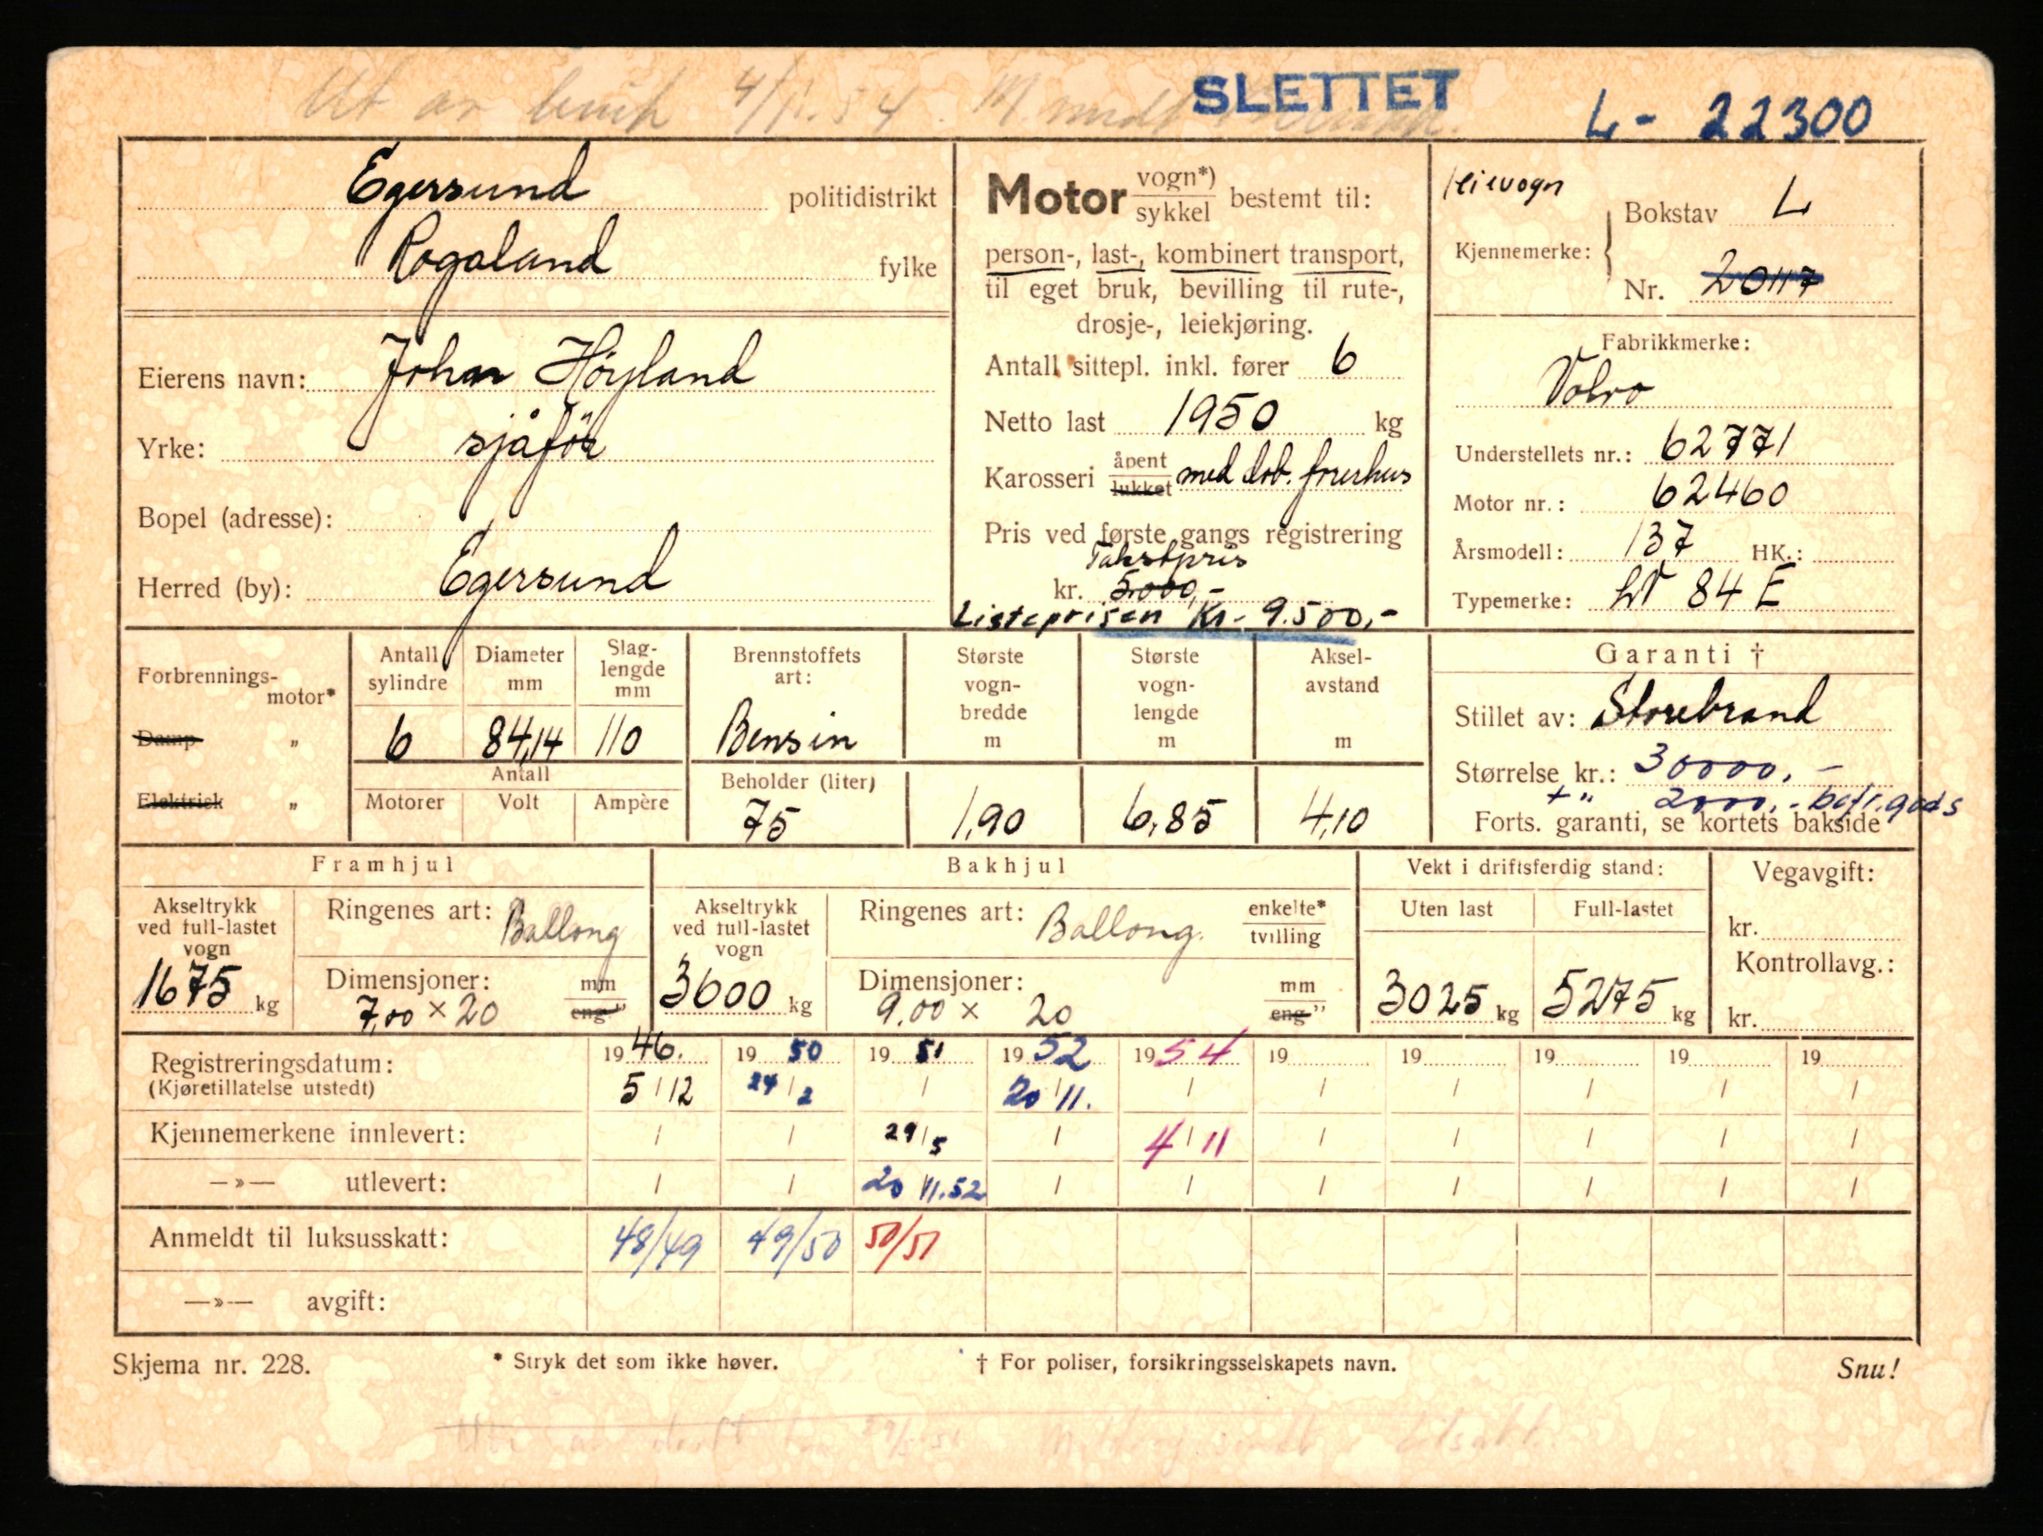 Ut av bruk 4/11.54. M. SLETTET L- 22300
Egersund politidistrikt
Rogaland fylke
Eierens navn: Johan Höyland
Yrke: sjåför
Bopel (adresse):
Herred (by): Egersund
Motor vogn*) sykkel bestemt til:
person-, last-, kombinert transport,
til eget bruk, bevilling til rute-,
drosje-, leiekjøring.
Antall sittepl. inkl. fører 6
Netto last 1950 kg
Karosseri åpent lukket med dob. förerhus
Pris ved første gangs registrering
Takstpris
kr. 5.000,-
Listeprisen Kr. 9.500,-
Leievogn
Bokstav L
Kjennemerke:
Nr. 20117
Fabrikkmerke:
Volvo
Understellets nr.: 62771
Motor nr.: 62460
Årsmodell: 137 HK.:
Typemerke: LV 84 E
Forbrennings-
motor*
Damp "
Elektrisk "
Antall sylindre
6
Diameter mm
84,14
Slag-
lengde
mm
110
Antall
Motorer Volt Ampère
Brennstoffets
art:
Bensin
Beholder (liter)
75
Største
vogn-
bredde
m
1,90
Største
vogn-
lengde
m
6,85
Aksel-
avstand
m
4,10
Garanti †
Stillet av: Storebrand
Størrelse kr.: 30000,-
+ " 2000,- bef. gods
Forts. garanti, se kortets bakside
Framhjul
Akseltrykk
ved full-lastet
vogn
1675 kg
Ringenes art: Ballong
Dimensjoner: mm
7,00 × 20 eng"
Bakhjul
Akseltrykk
ved full-lastet
vogn
3600 kg
Ringenes art: Ballong. enkelte*
tvilling
Dimensjoner: mm
9.00 × 20 eng"
Vekt i driftsferdig stand:
Uten last Full-lastet
3025 kg 5275 kg
Vegavgift:
kr.
Kontrollavg.:
kr.
Registreringsdatum: 1946. 1950 1951 1952 1954 19 19 19 19 19
(Kjøretillatelse utstedt) 5/12 24/2 / 20/11. / / / / / /
Kjennemerkene innlevert: / / 29/5 / 4/11 / / / / /
—»— utlevert: / / 20/11.52 / / / / / / /
Anmeldt til luksusskatt: 48/49 49/50 50/51
—»— avgift:
Skjema nr. 228. * Stryk det som ikke høver. † For poliser, forsikringsselskapets navn. Snu!